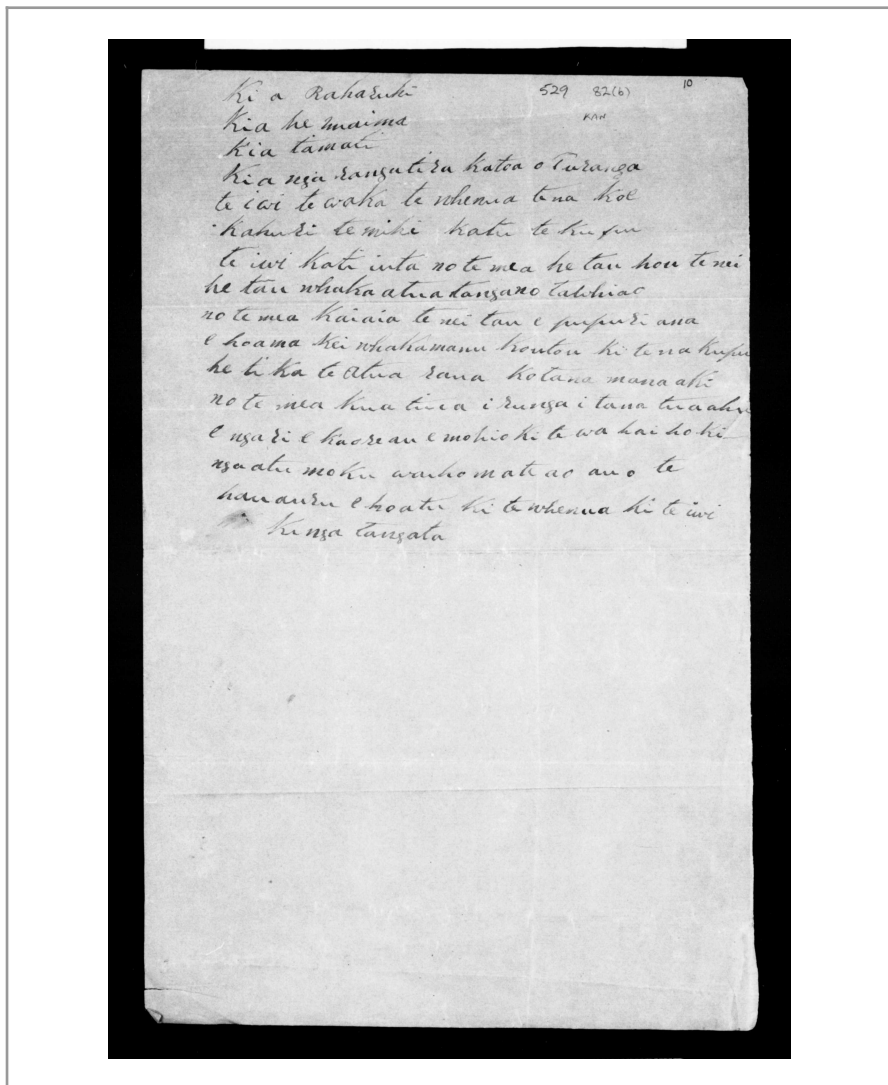 Ki a Raharuhi 529 82(b) 10
Kia he muaima RAN
Kia tamati
Kia nga rangatira katoa o Turanga
te iwi te waka te whenua tena koe
Kahuri te mihi katu te kupu
te iwi kati iuta no te mea he tau hou te nei
he tau whaka atua tanga no tawhiao
no te mea kaiaia te nei tau e pupuri ana
e hoama kei whakamanu koutou ki te na kupu
he tika te Atua raua ko tana mana aki
no te mea kua tiua i runga i tana tuaahu
e ngari e kaore au e mohio ki te wa hai hoki
nga atu moku waiho mati ao au o te
hauauru e hoatu ki te whenua ki te iwi
ki nga tangata